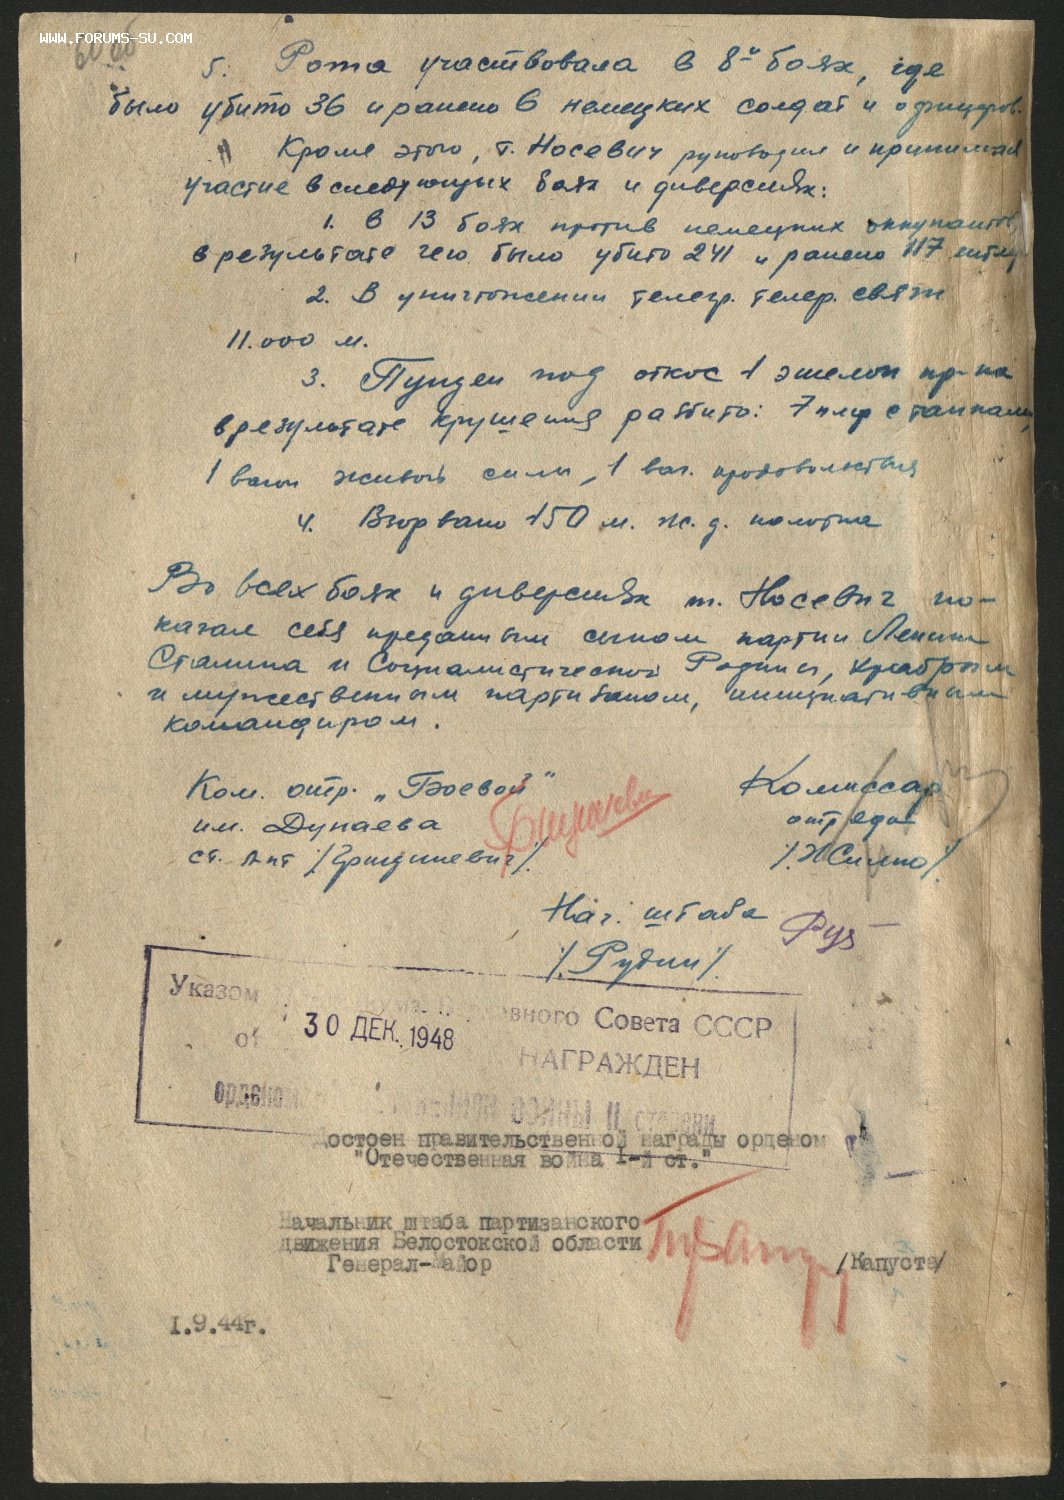 WWW.FORUMS-SU.COM
5. Рота участвовала в 8й боях, где
было убито 36 и ранено 6 немецких солдат и офицеров.
Кроме этого, т. Носевич руководил и принимал
участие в следующих боях и диверсиях:
1. В 13 боях против немецких оккупантов,
в результате чего было убито 241 и ранено 117 гитлер
2. В уничтожении телегр. телеф. связи
11.000 м.
3. Пущен под откос 1 эшелон пр-ка
в результате крушения разбито: 7 плф с танками,
1 вагон живой силы, 1 ваг. продовольствия
4. Взорвано 150 м. ж.д. полотна
Во всех боях и диверсиях т. Носевич по-
казал себя преданным сыном партии Ленина
Сталина и Социалистической Родины, храбрым
и мужественным партизаном, инициативным
командиром.
Ком. отр. „Боевой"
им. Дунаева
ст. л-нт /Гриднневич/.
Комиссар
отряда
/. /.
Нач. штаба
/. Рудин/.
Указом Верховного Совета СССР
от 30 ДЕК. 1948
НАГРАЖДЕН
орденом Отечественной войны II степени
Достоен правительственной награды орденом
"Отечественная война I-й ст."
Начальник штаба партизанского
движения Белостокской области
Генерал-Майор /Капуста/
I.9.44г.